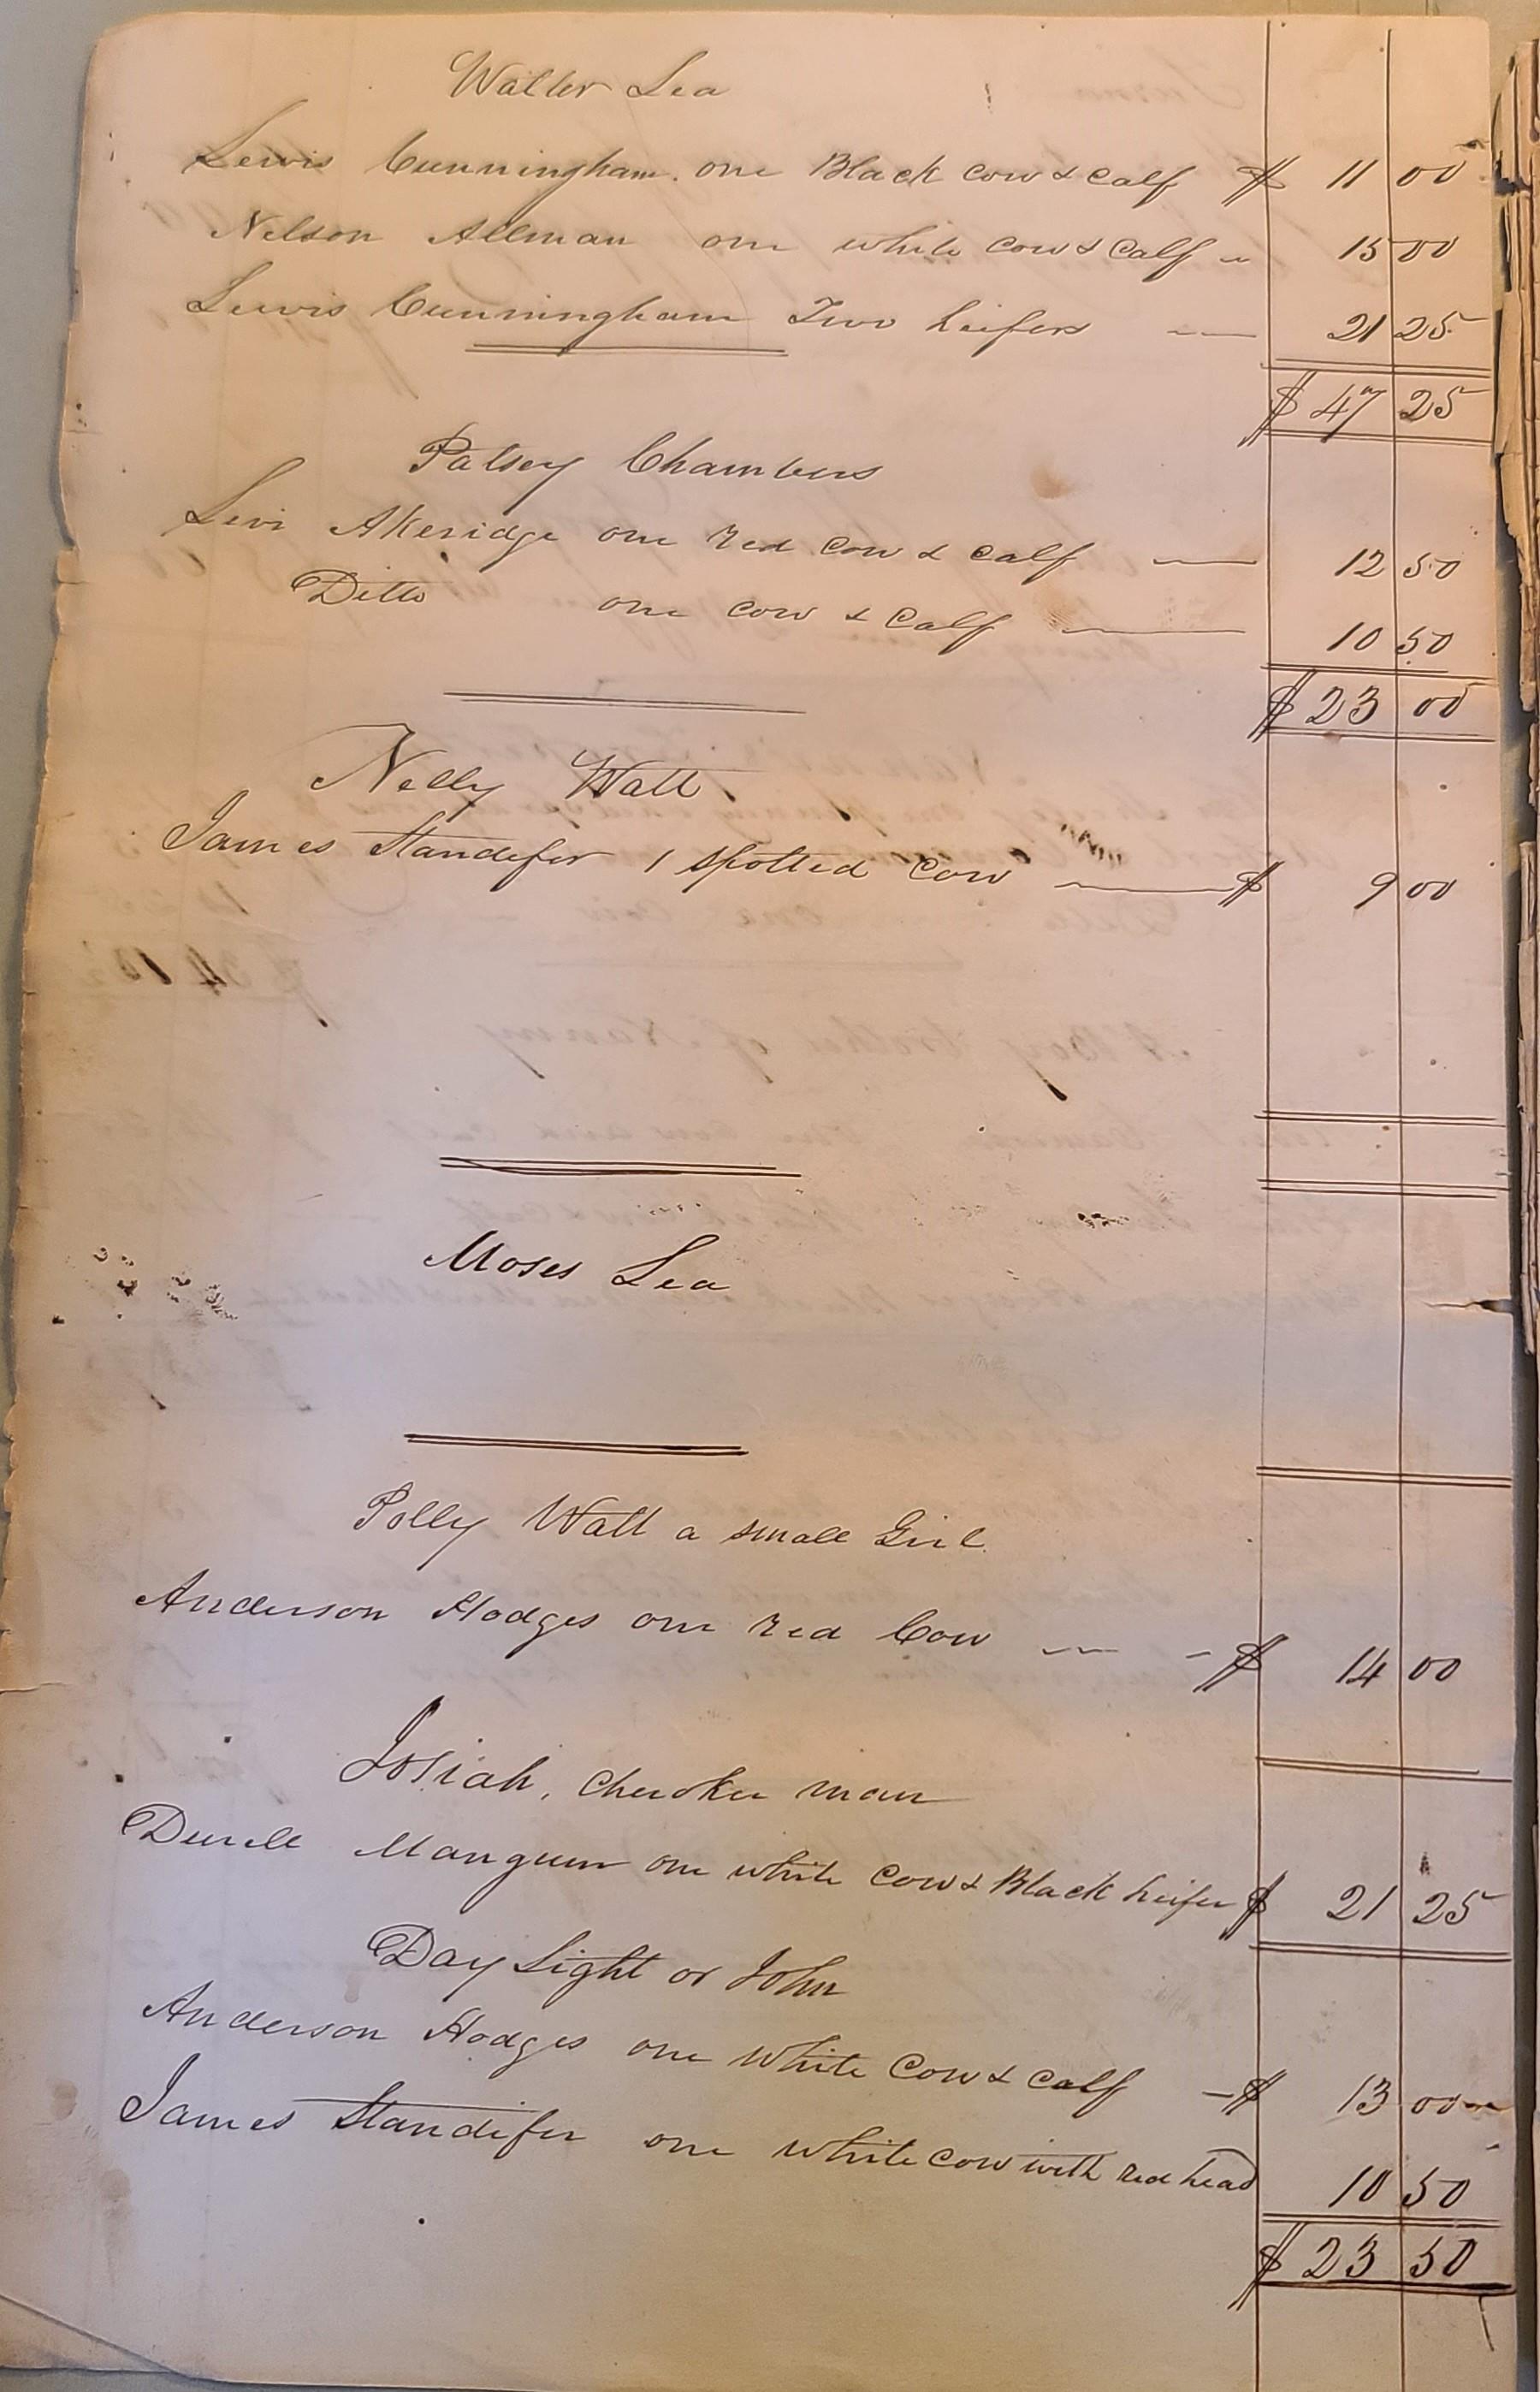 Walter Lea
Lewis Cunningham. one Black cow & calf $ 11 00
Nelson Allman one white cow & calf " 15 00
Lewis Cunningham Two heifers — 21 25
$ 47 25
Patsey Chambers
Levi Akeridge one red cow & calf — 12 50
Ditto one cow & calf — 10 50
$ 23 00
Nelly Watt
James Standefer 1 spotted cow — $ 9 00
Moses Lea
Polly Watt a small Girl
Anderson Hodges one red Cow — - $ 14 00
Josiah, Cherokee man
Durell Mangum one white cow & Black heifer $ 21 25
Day Light or John
Anderson Hodges one white Cow & calf — $ 13 00
James Standifer one white cow with red head 10 50
$ 23 50